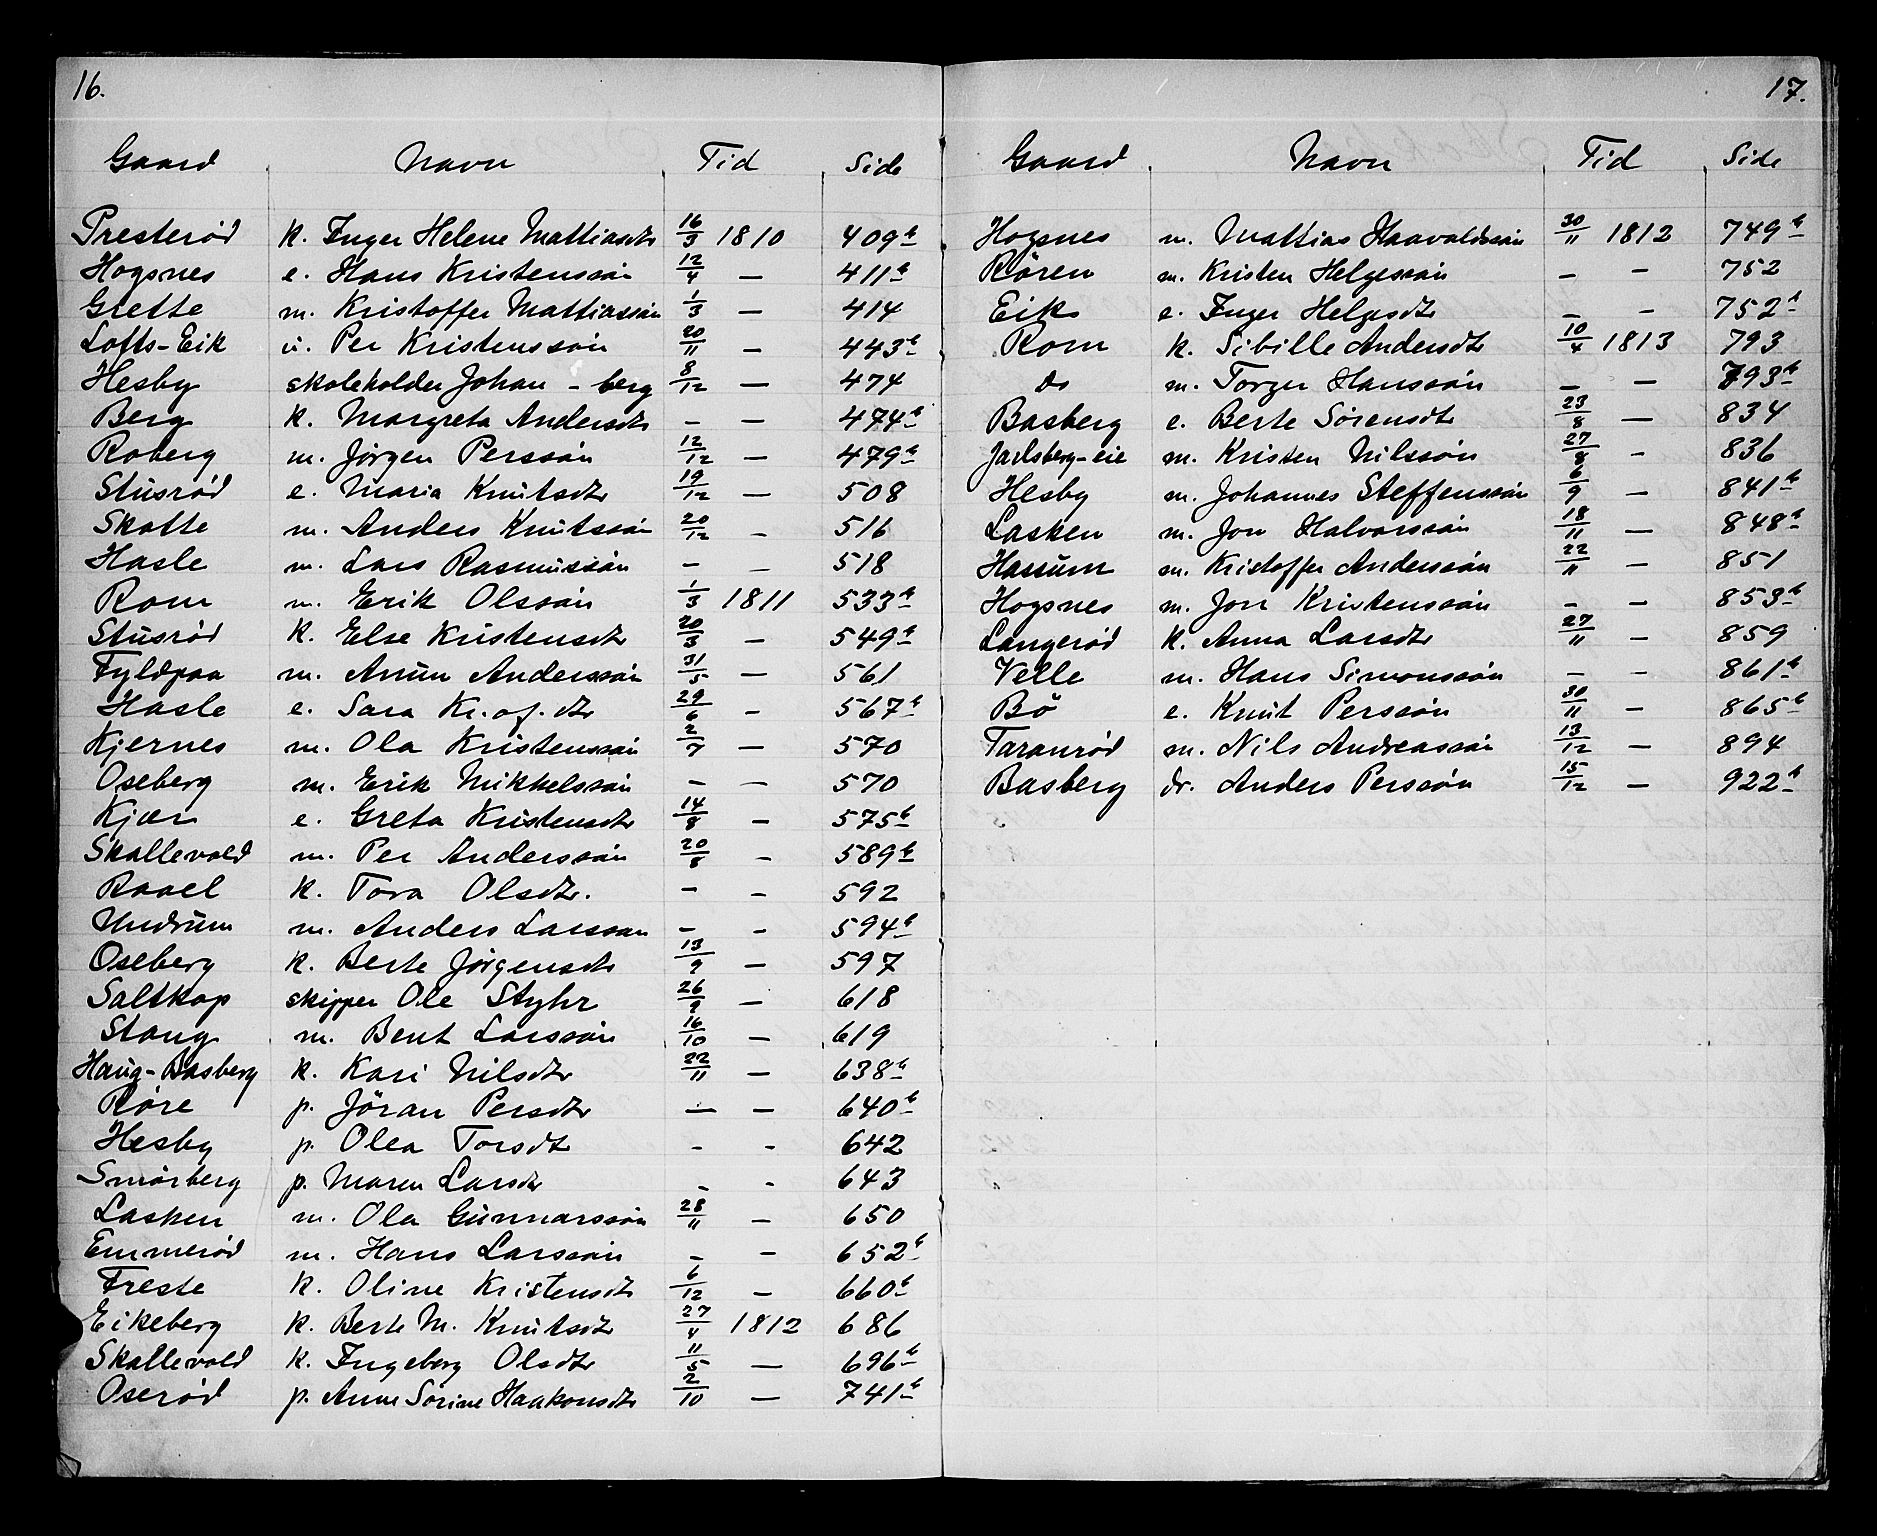 16.
Gaard Navn Tid Side
Presterød k. Inger Helene Mattiasdtr 16/3 1810 409b
Hogsnes e. Hans Kristenssøn 12/4 — 411b
Grette m. Kristoffer Mattiassøn 1/3 — 414
Lofts-Eik u. Per Kristenssøn 20/11 — 443b
Hesby skoleholder Johan - berg 8/12 — 474
Berg k. Margreta Andersdtr - - 474b
Roberg m. Jörgen Perssøn 12/12 — 479b
Stusrød e. Maria Knutsdtr 19/12 — 508
Skotte m. Anders Knutssøn 20/12 - 516
Hasle m. Lars Rasmussøn - - 518
Rom m. Erik Olssøn 1/3 1811 533b
Stusrød k. Else Kristensdtr 20/3 - 549b
Fyldpaa m. Anun Anderssøn 31/5 — 561
Hasle e. Sara Kr.of.dtr 29/6 - 567b
Kjernes m. Ola Kristenssøn 2/7 — 570
Oseberg m. Erik Mikkelssøn - — 570
Kjær e. Greta Kristensdtr 14/8 - 575b
Skallevold m. Per Anderssøn 20/8 - 589b
Raael k. Tora Olsdtr. - - 592
Undrum m. Anders Larssøn - - 594b
Oseberg k. Berte Jörgensdtr 13/9 — 597
Saltkop skipper Ole Styhr 26/9 — 618
Stang m. Bent Larssøn 16/10 — 619
Haug-Basberg k. Kari Nilsdtr 22/11 — 638b
Røre p. Jöran Persdtr — — 640b
Hesby p. Olea Torsdtr - - 642
Smørberg p. Maren Larsdtr - - 643
Lasken m. Ola Gunnarssøn 28/11 — 650
Emmerød m. Hans Larssøn - - 652b
Freste k. Oline Kristensdtr 6/12 — 660b
Eikeberg k. Berte M. Knutsdtr 27/4 1812 686
Skallevold k. Ingeborg Olsdtr 11/5 — 696b
Oserød p. Anne Sørine Haakonsdtr 2/10 — 741b
17.
Gaard Navn Tid Side
Hogsnes m. Mattias Haavaldssøn 30/11 1812 749b
Rören m. Kristen Helgessøn - - 752
Eik e. Inger Helgesdtr - - 752b
Rom k. Sibille Andersdtr 10/4 1813 793
do m. Torger Hanssøn — — 793b
Basberg e. Berte Sørensdtr 23/8 — 834
Jarlsberg-eie m. Kristen Nilssøn 27/8 - 836
Hesby m. Johannes Steffenssøn 6/9 - 841b
Lasken m. Jon Halvorssøn 18/11 — 848b
Hassum m. Kristoffer Anderssøn 22/11 - 851
Hogsnes m. Jon Kristenssøn - - 853b
Langerød k. Anna Larsdtr 27/11 - 859
Velle m. Hans Simonssøn - - 861b
Bö e. Knut Perssøn 30/11 — 865b
Taranrød m. Nils Andreassøn 13/12 — 894
Basberg dr. Anders Perssøn 15/12 — 922b